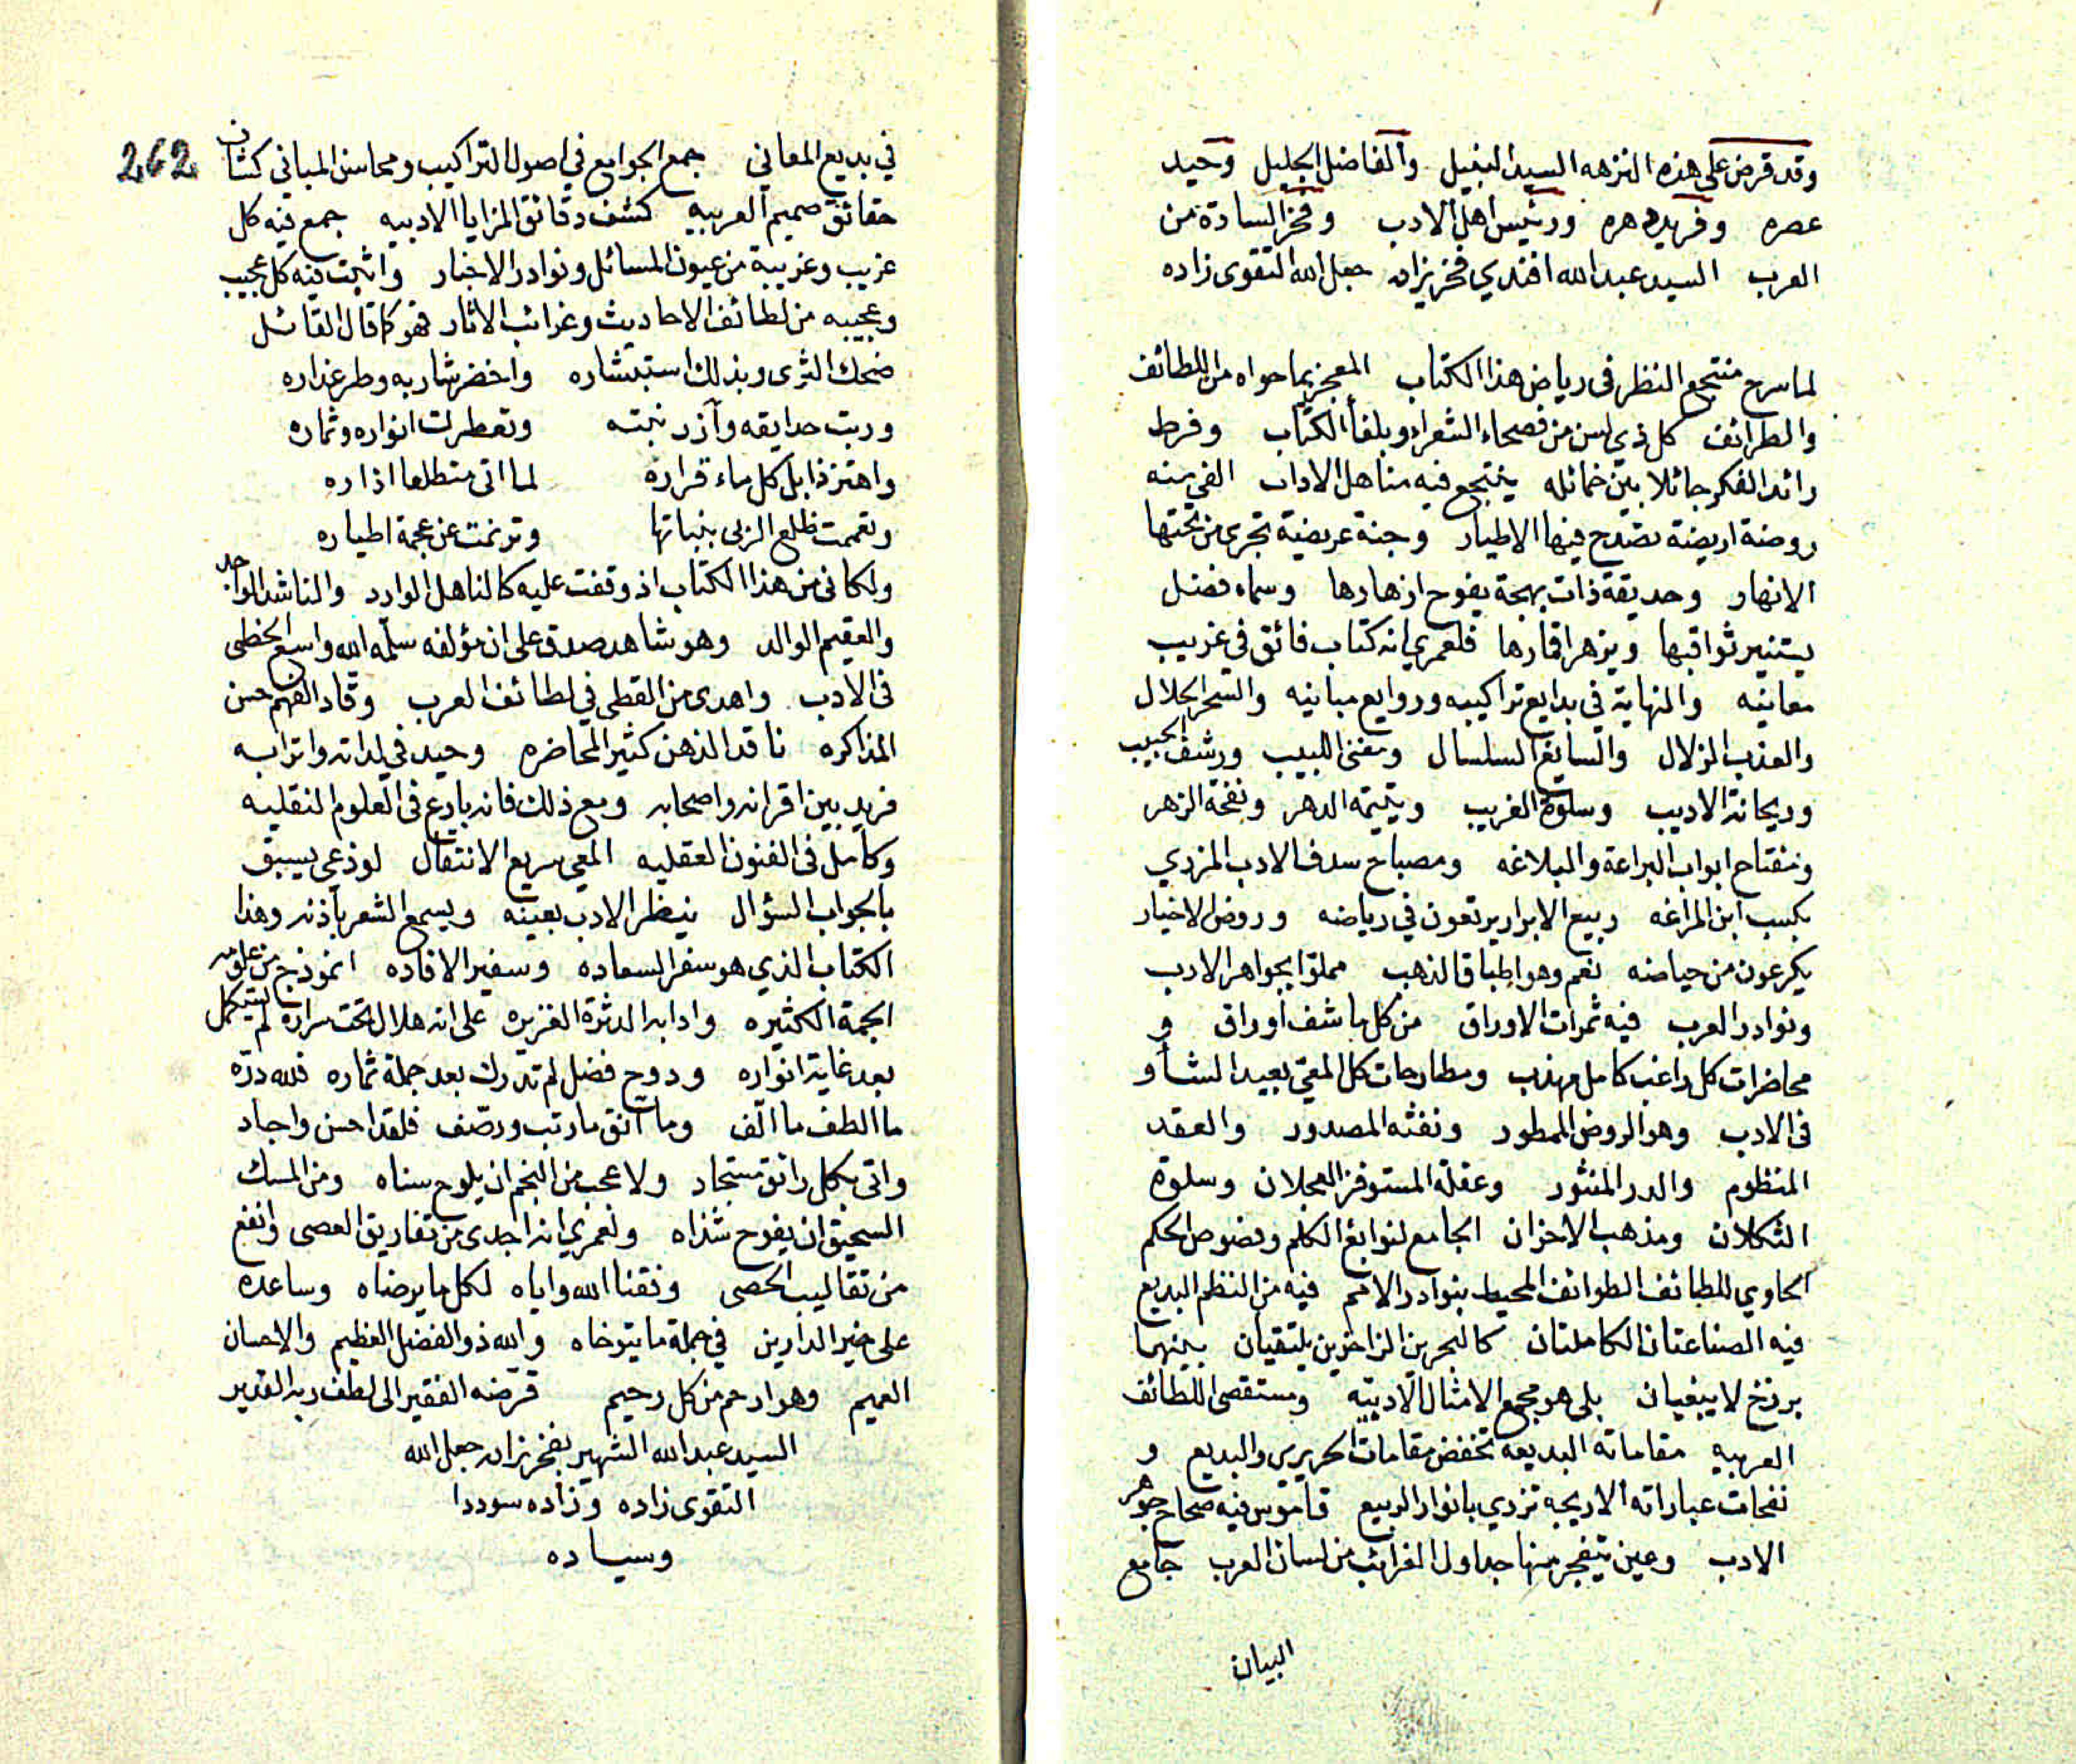 وقد قرض على هذه النزهه السيد النبيل والفاضل الجليل وحيد
عصره وفريد دهره ورئيس اهل الادب وفخر السادة من
العرب السيد عبد الله افندي فخريزاده جعل الله التقوى زاده
لما سرح منتجع النظر فى رياض هذا الكتاب المعجز بما حواه من اللطائف
والطرائف كل ذي لسن من فصحاء الشعراء وبلغأ الكتاب وفرط
رائد الفكر جائلا بين خمائله ينتجع فيه مناهل الاداب الفى منه
روضة اريضة تصدح فيها الاطيار وجنة عريضة تجرى من تحتها
الانهار وحديقة ذات بهجة يفوح ازهارها وسماء فضل
يستنير ثواقبها ويزهر اقمارها فلعمري انه كتاب فائق في غريب
معانيه والنهاية في بدايع تراكيبه وروايع مبانيه والسحر الحلال
والعذب الزلال والسايغ السلسال ومغنى اللبيب ورشف الحبيب
وريحانة الاديب وسلوة الغريب ويتيمة الدهر ونفحة الزهر
ومفتاح ابواب البراعة والبلاغه ومصباح سدف الادب المزدي
بكسب ابن المراغه ربيع الابرار يرتعون في رياضه وروض الاخيار
يكرعون من حياضه نعم وهو اطباق الذهب مملوّا بجواهر الادب
ونوادر العرب فيه ثمرات الاوراق من كل ما شف اوراق و
محاضرات كل راغب كامل مهذب ومطارحات كل المعيّ بعيد الشأو
فى الادب وهو الروض الممطور ونفثه المصدور والعقد
المنظوم والدر المنثور وعقلة المستوفز العجلان وسلوة
الثكلان ومذهب الاحزان الجامع لنوابغ الكلم وفصوص الحكم
الحاوي للطائف الطوائف المحيط بنوادر الامم فيه من النظم البديع
فيه الصناعتان الكاملتان كالبحرين الزاخرين يلتقيان بينهما
برزخ لا يبغيان بلى هو مجمع الامثال الادبيّه ومستقصى اللطائف
العربيه مقاماته البديعه تخفض مقامات الحريري والبديع و
نفحات عباراته الاريجه تزدي بانوار الربيع قاموس فيه صحاح جوهر
الادب وعين يتفجر منها جداول الغرائب من لسان العرب جامع
البيان
262
في بديع المعاني جمع الجوامع في اصول التراكيب ومحاسن المباني كشاف
حقائق صميم العربيه كشف دقائق المزايا الادبيه جمع فيه كل
غريب وغريبة من عيون المسائل ونوادر الاخبار واثبت فيه كل عجيب
وعجيبه من لطائف الاحاديث وغرائب الاثار فهو كما قال القائل
ضحك الثرى وبذلك استبشاره واخضر شاربه وطر عذاره
وربت حدايقه وآزر نبته وتعطرت انواره وثماره
واهتز ذابل كل ماء قراره لما اتى متطلعا اذاره
وتعممت ظلع الربى بنباتها وترنمت عن عجمة اطياره
ولكانى من هذا الكتاب اذ وقفت عليه كالناهل الوارد والناشد الواجد
والعقيم الوالد وهو شاهد صدق على ان مؤلفه سلّمه الله واسع الخطى
فى الادب واهدى من القطى في لطائف العرب وقّاد الفهم حسن
المذاكره ناقد الذهن كثير المحاضره وحيد في لداته واترابه
فريد بين اقرانه واصحابه ومع ذلك فانه بارع فى العلوم النقليه
وكامل فى الفنون العقليه المعي سريع الانتقال لوذعي يسبق
بالجواب السؤال ينظر الادب بعينه ويسمع الشعر بآذنه وهذا
الكتاب الذي هو سفر السعاده وسفير الافاده انموذج من علومه
الجمة الكثيره وادابه الدثرة الغزيره على انه هلال تحت سراره لم يستكمل
بعد غاية انواره ودوح فضل لم تدرك بعد جملة ثماره فلله درّه
ما الطف ما الّف وما آنق ما رتب ورصّف فلقد احسن واجاد
واتى بكل رائق مستجاد ولا عجب من النجم ان يلوح سناه ومن المسك
السحيق ان يفوح شذاه ولعمري انه اجدى من تفاريق العصى وانفع
من تقاليب الحصى وفقنا الله واياه لكل ما يرضاه وساعده
على خير الدارين في جملة ما يتوخاه والله ذو الفضل العظيم والاحسان
العميم وهو ارحم من كل رحيم قرّضه الفقير الى لطف ربه القدير
السيد عبد الله الشهير بفخريزاده جعل الله
التقوى زاده وزاده سوددا
وسياده